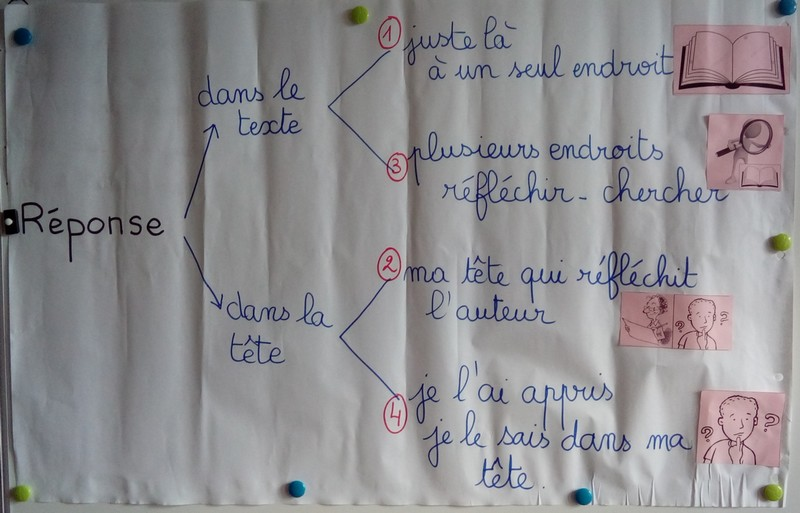 Réponse
dans le
texte
① juste là
à un seul endroit
③ plusieurs endroits
réfléchir - chercher
dans la
tête
② ma tête qui réfléchit
l'auteur
? ?
④ je l'ai appris
je le sais dans ma
tête.
? ?